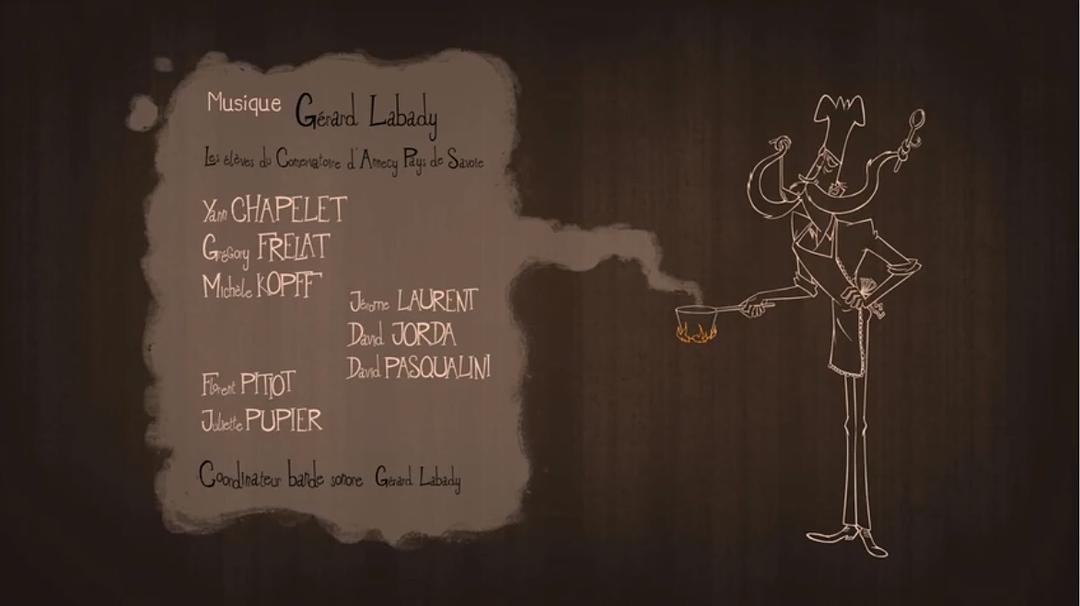 Musique Gérard Labady
Les élèves du Conservatoire d'Annecy Pays de Savoie
Yann CHAPELET
Grégory FRELAT
Michèle KOPFF
Jérome LAURENT
David JORDA
David PASQUALINI
Florent PITIOT
Juliette PUPIER
Coordinateur bande sonore Gérard Labady